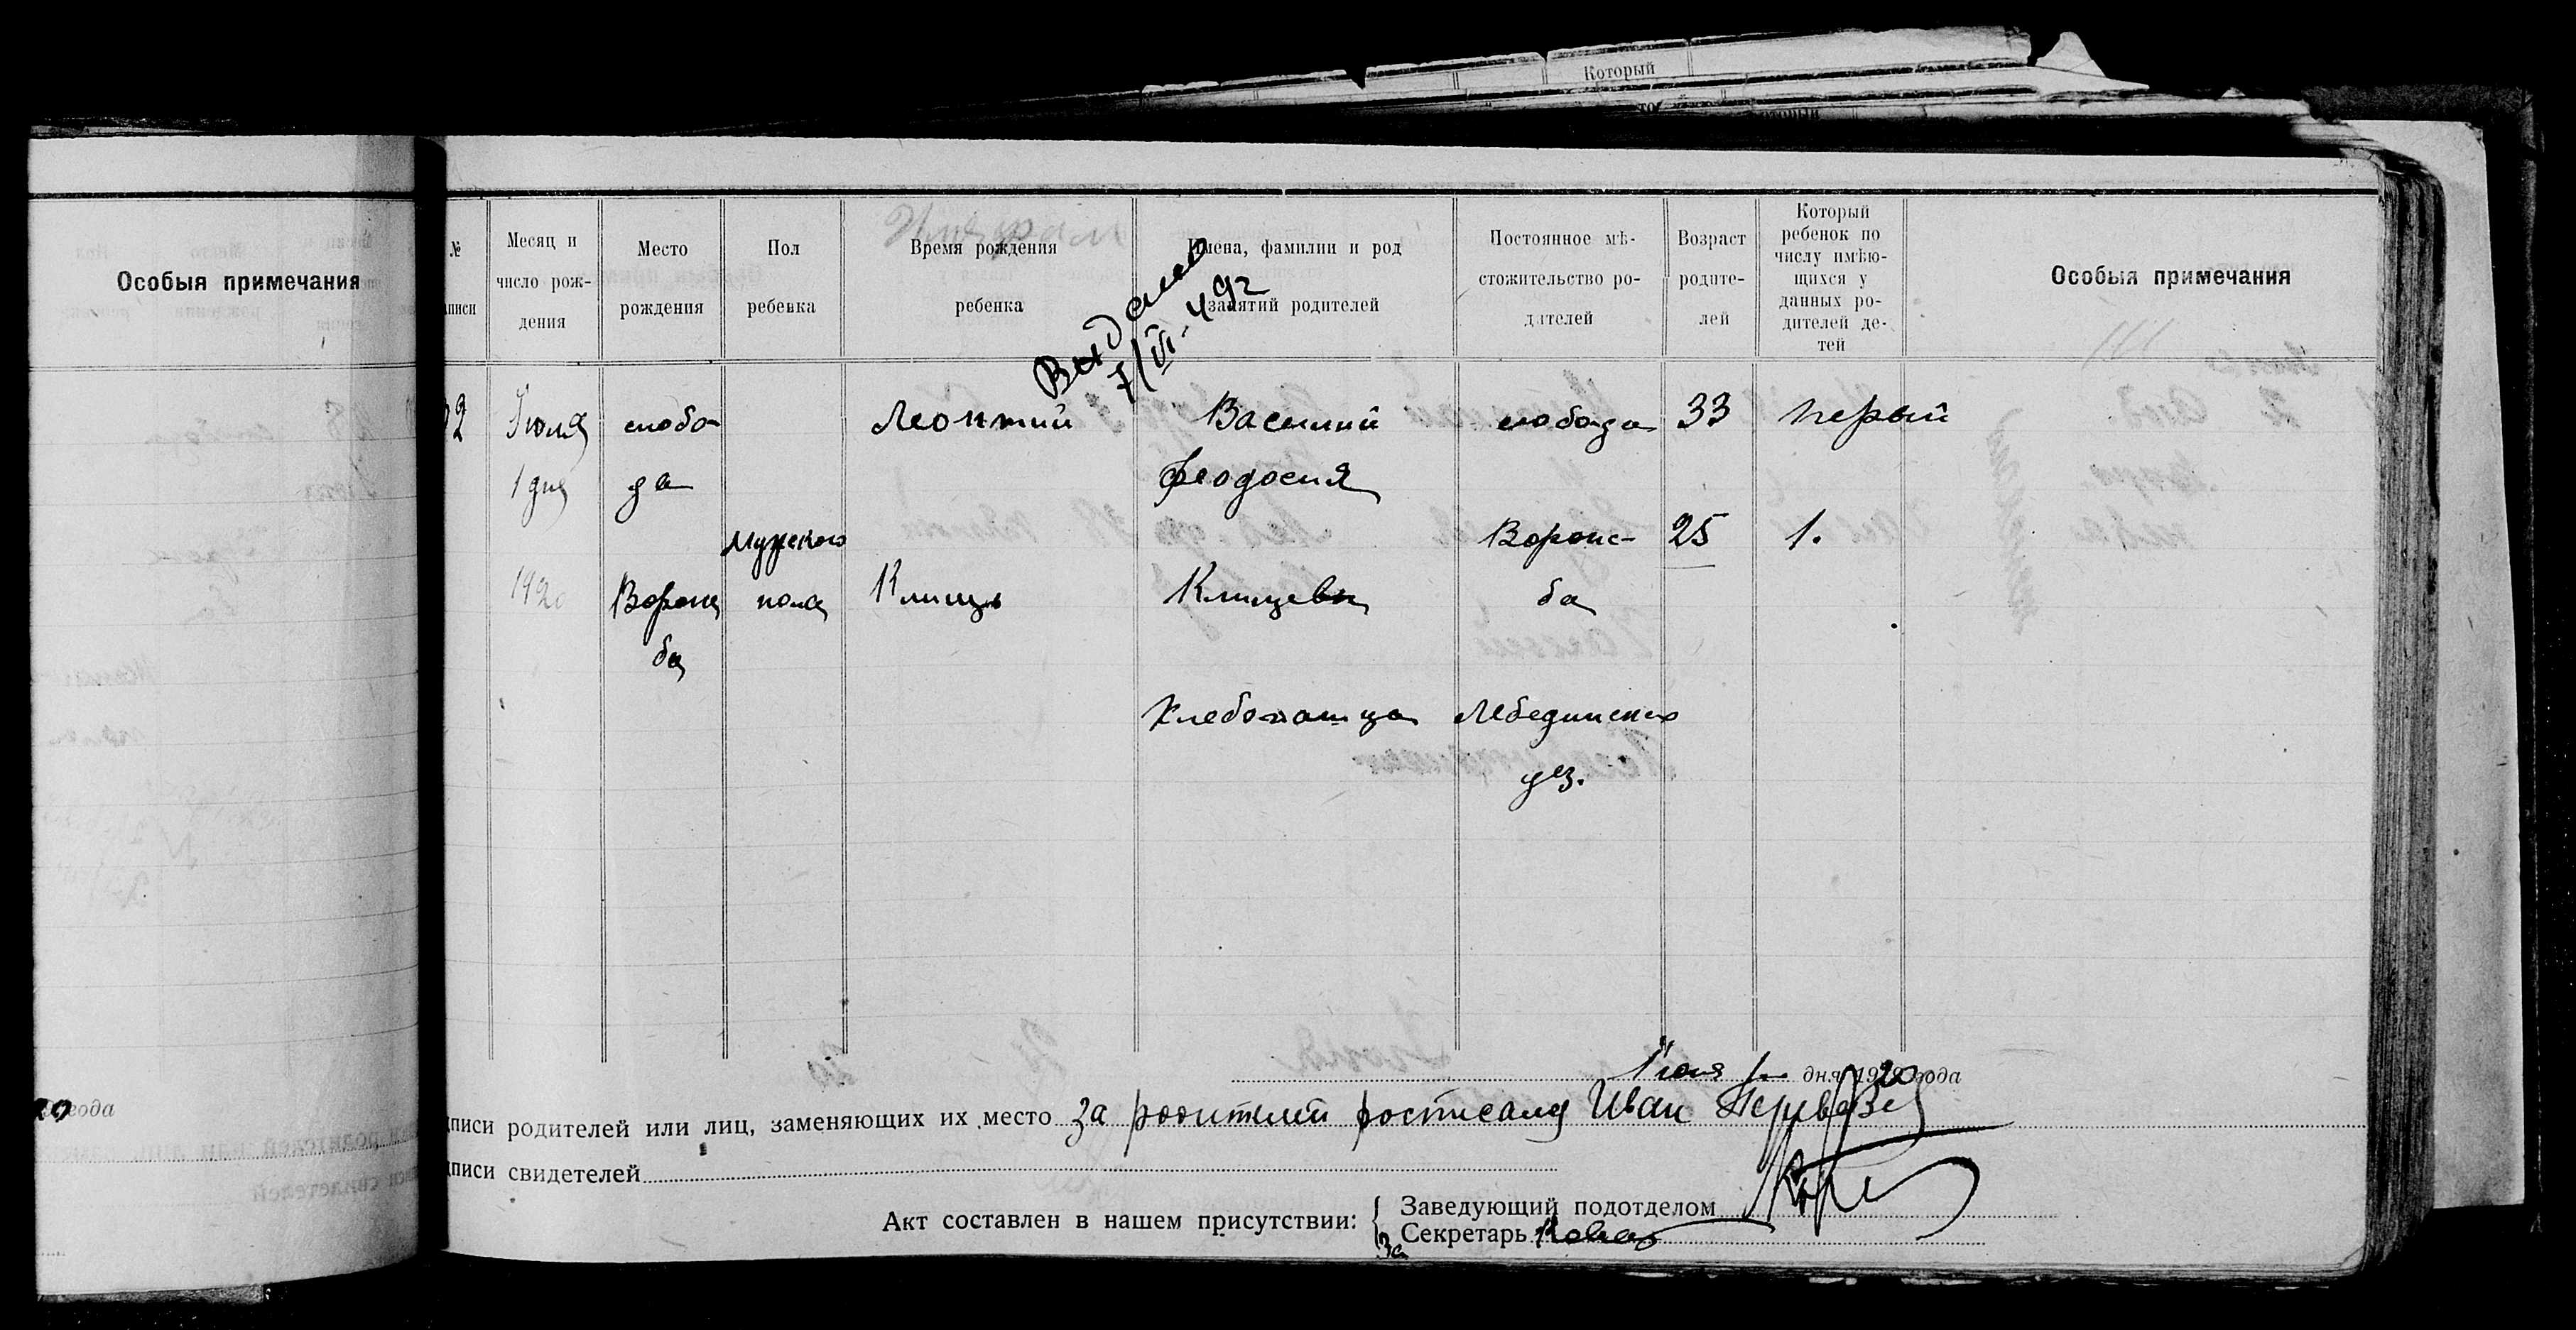 Который
Особыя примечания
№
Месяц и
число рож-
дения
Место
рождения
Пол
ребенка
Время рождения
ребенка
Имена, фамилии и род
занятий родителей
Постоянное мѣ-
стожительство ро-
дителей
Возраст
родите-
лей
Который
ребенок по
числу имѣю-
щихся у
данных ро-
дителей де-
тей
Особыя примечания
Выдано
7/VI-
2
Июля
1 дня
1920
слобо-
да
Ворож
ба
Мужского
пола
Леонтий
Клищь
Василий
Феодосия
Клищевы
Хлебопашца
слобода
Ворож-
ба
Лебединского
уез.
33
25
первый
1.
1 дня 20 года
года
родителей или лиц, заменяющих их место за родителей росписался Иван
свидетелей
Акт составлен в нашем присутствии:
Заведующий подотделом
За Секретарь